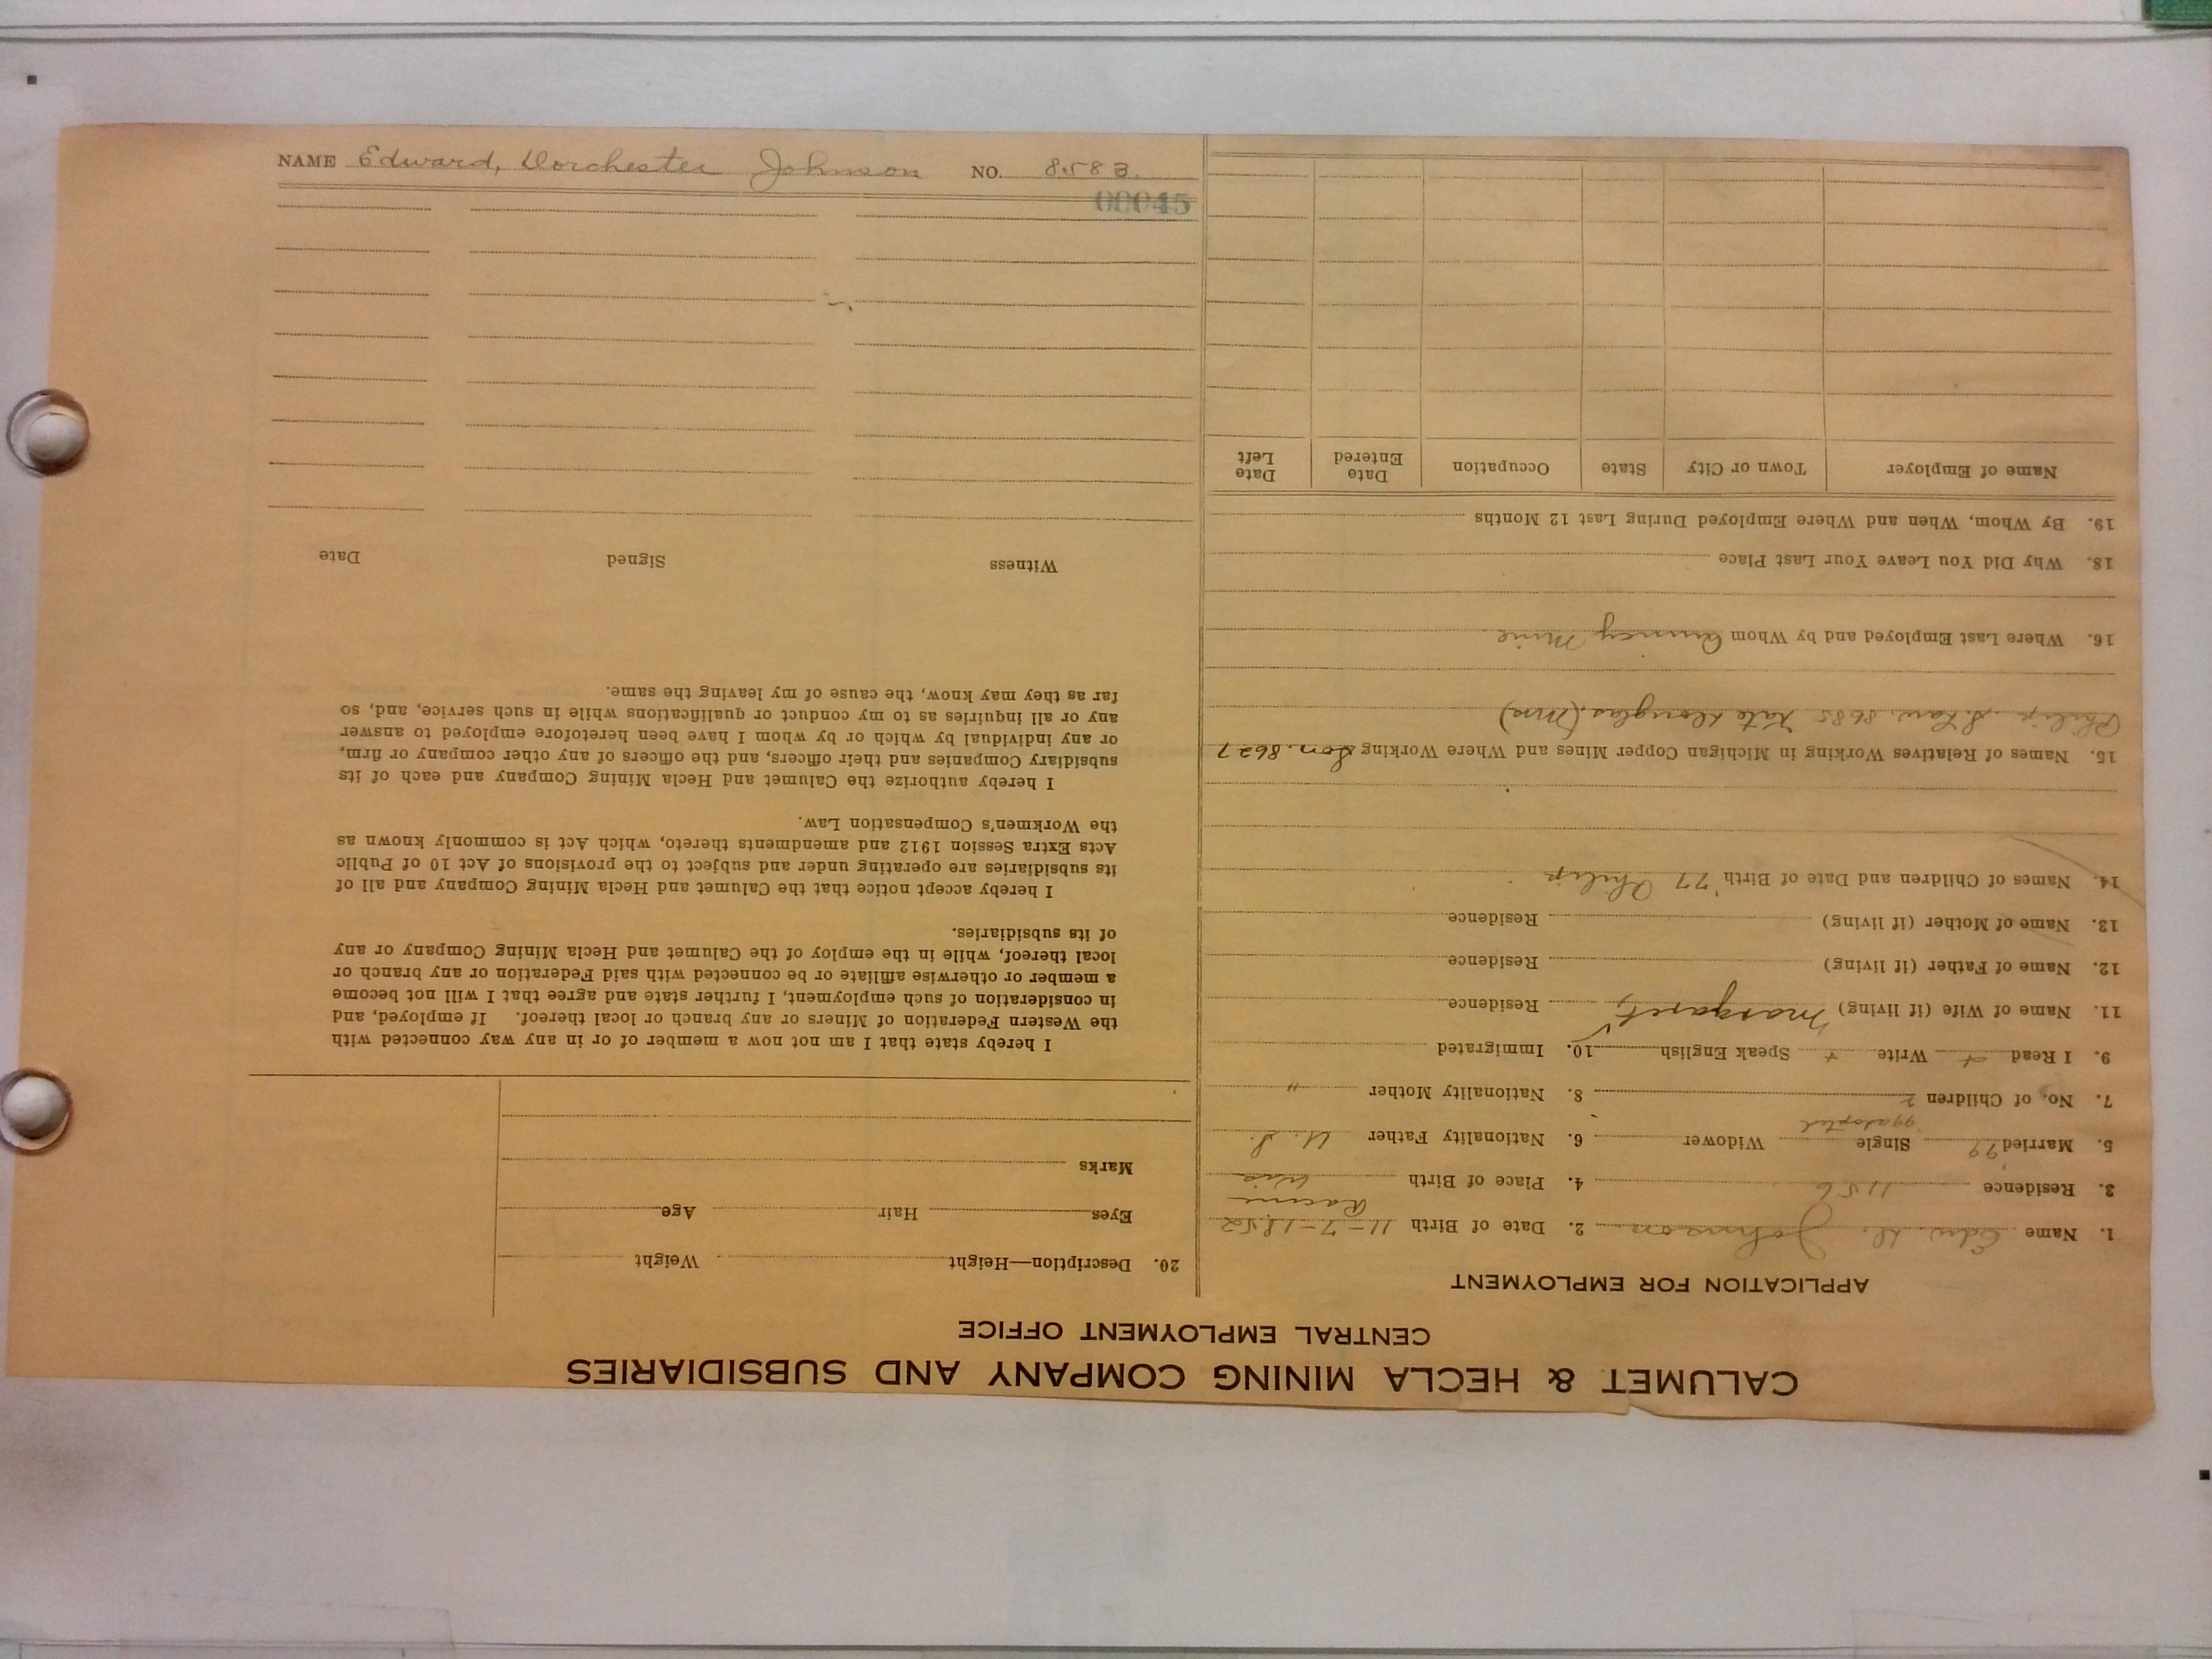 NAME Edward, Dorchester Johnson NO. 8583.
00045
CALUMET & HECLA MINING COMPANY AND SUBSIDIARIES
CENTRAL EMPLOYMENT OFFICE
APPLICATION FOR EMPLOYMENT
1. Name Edw. D. Johnson 2. Date of Birth 11-7-1852
Racine
3. Residence 1156 4. Place of Birth Wis
5. Married '99 Single Widower 6. Nationality Father U.S.
adopted
7. No. of Children 2 8. Nationality Mother "
9. I Read + Write + Speak English 10. Immigrated
11. Name of Wife (if living) Margaret Residence
12. Name of Father (if living) Residence
13. Name of Mother (if living) Residence
14. Names of Children and Date of Birth '77 Philip
15. Names of Relatives Working in Michigan Copper Mines and Where Working Son. 8627
Philip S. Law. 8685 Kate Douglas (Mrs)
16. Where Last Employed and by Whom Quincy Mine
18. Why Did You Leave Your Last Place
19. By Whom, When and Where Employed During Last 12 Months
Name of Employer Town or City State Occupation Date Entered Date Left
20. Description—Height Weight
Eyes Hair Age
Marks
I hereby state that I am not now a member of or in any way connected with
the Western Federation of Miners or any branch or local thereof. If employed, and
in consideration of such employment, I further state and agree that I will not become
a member or otherwise affiliate or be connected with said Federation or any branch or
local thereof, while in the employ of the Calumet and Hecla Mining Company or any
of its subsidiaries.
I hereby accept notice that the Calumet and Hecla Mining Company and all of
its subsidiaries are operating under and subject to the provisions of Act 10 of Public
Acts Extra Session 1912 and amendments thereto, which Act is commonly known as
the Workmen's Compensation Law.
I hereby authorize the Calumet and Hecla Mining Company and each of its
subsidiary Companies and their officers, and the officers of any other company or firm,
or any individual by which or by whom I have been heretofore employed to answer
any or all inquiries as to my conduct or qualifications while in such service, and, so
far as they may know, the cause of my leaving the same.
Witness Signed Date